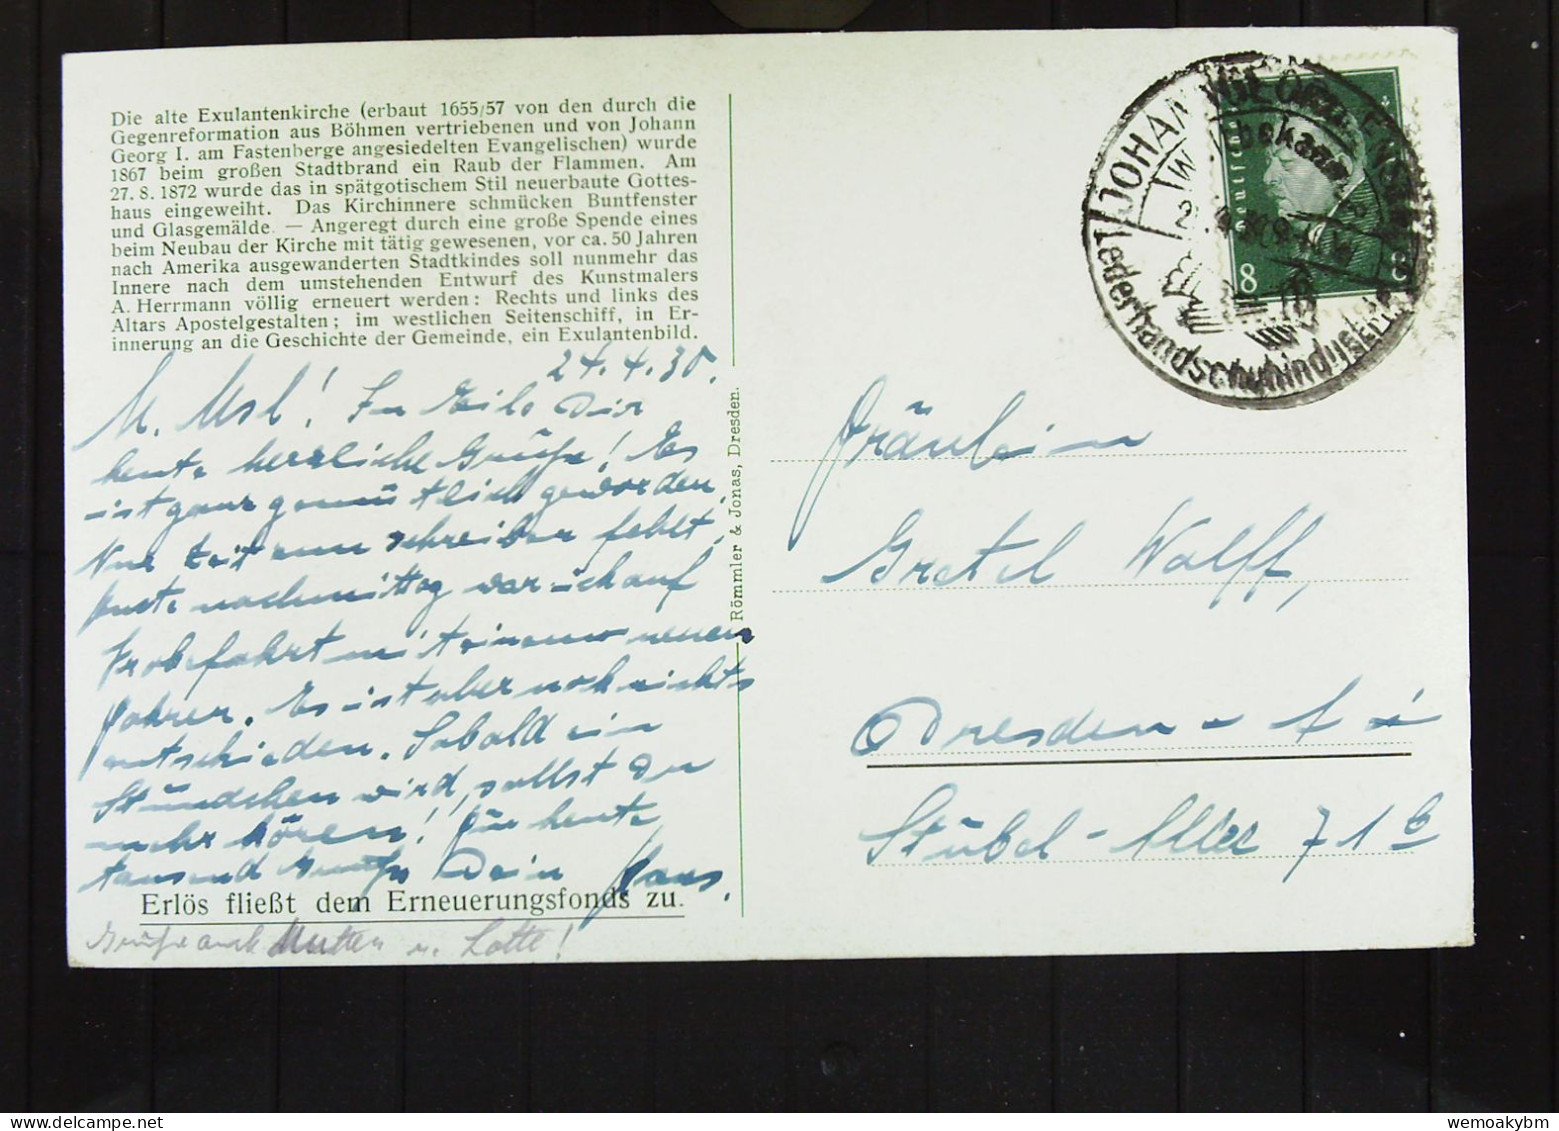 Die alte Exulantenkirche (erbaut 1655/57 von den durch die
Gegenreformation aus Böhmen vertriebenen und von Johann
Georg I. am Fastenberge angesiedelten Evangelischen) wurde
1867 beim großen Stadtbrand ein Raub der Flammen. Am
27. 8. 1872 wurde das in spätgotischem Stil neuerbaute Gottes-
haus eingeweiht. Das Kirchinnere schmücken Buntfenster
und Glasgemälde. — Angeregt durch eine große Spende eines
beim Neubau der Kirche mit tätig gewesenen, vor ca. 50 Jahren
nach Amerika ausgewanderten Stadtkindes soll nunmehr das
Innere nach dem umstehenden Entwurf des Kunstmalers
A. Herrmann völlig erneuert werden: Rechts und links des
Altars Apostelgestalten; im westlichen Seitenschiff, in Er-
innerung an die Geschichte der Gemeinde, ein Exulantenbild.
24. 4. 30.
In Eile Dir
heute herzliche Grüße! Es
ist ganz gemütlich geworden.
Nur Zeit zum schreiben fehlt.
Heute nachmittag war ich auf
Probefahrt mit einem neuen
Fahrer. Es ist aber noch nichts
entschieden. Sobald ein
Stündchen wird, sollst Du
mehr hören! Für heute
tausend Grüße Dein Hans.
Erlös fließt dem Erneuerungsfonds zu.
Grüße auch Mutter u. Lotte!
Römmler & Jonas, Dresden.
JOHANNGEORGENSTADT
Lederhandschuhindustrie
8
Fräulein
Gretel Wolff,
Dresden-A
Stübel-Allee 71 b
wemoakybm